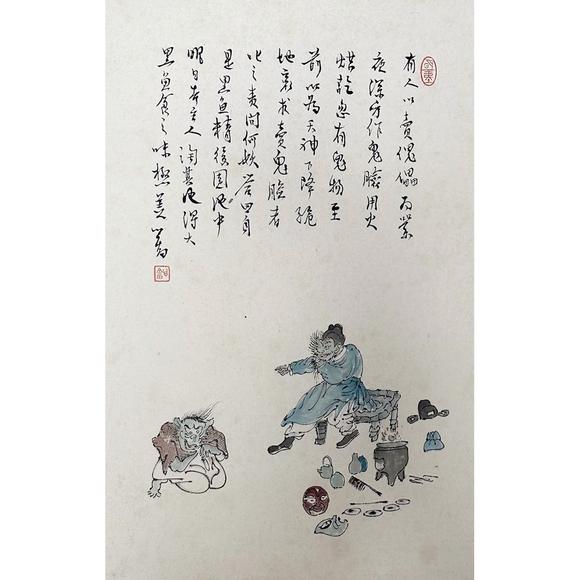 有人以賣傀儡為業
夜深方作鬼臉用火
烘乾忽有鬼物至
前以為天神下降跪
地哀求賣鬼臉者
叱之責問何妖答曰自
是黑魚精後園池中
明日告主人淘其池得大
黑魚食之味極美 溥